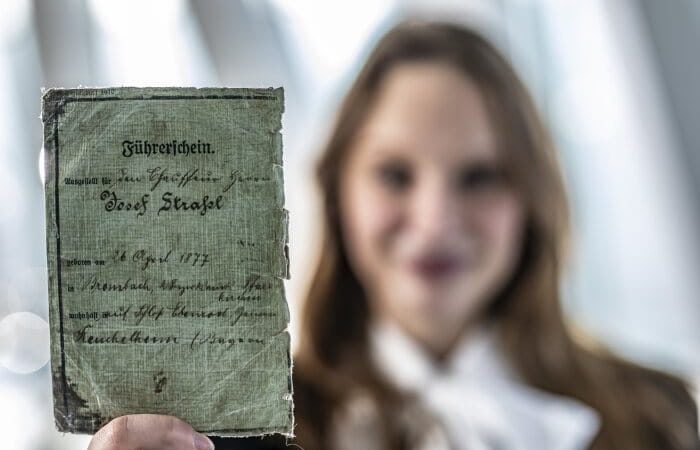 Führerschein.
Ausgestellt für den Chauffeur Herrn
Josef Straßl
geboren am 26 April 1877
in Brombach, Bezirksamt Pfarr
kirchen
wohnhaft auf Schloß
(Bayern)